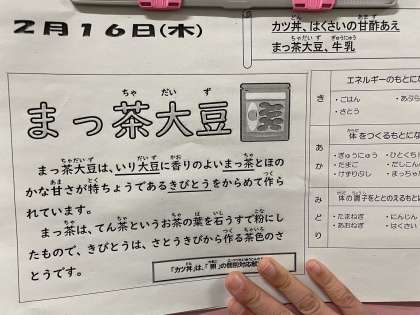 2月16日(木)
カツ丼、はくさいの甘酢あえ
まっ茶大豆、牛乳
まっ茶大豆
まっ茶大豆は、いり大豆に香りのよいまっ茶とほの
かな甘さが特ちょうであるきびとうをからめて作ら
れています。
まっ茶は、てん茶というお茶の葉を石うすで粉にし
たもので、きびとうは、さとうきびから作る茶色のさ
とうです。
「カツ丼」は、「
エネルギーのもとにな
き
・ごはん
・さとう
体をつくるもとにな
あか
・ぎゅうにゅう
・たまご
・けずりぶし
・ひとくち
・だしこん
・まっちゃ
体の調子をととのえるもとに
みどり
・たまねぎ
・あおねぎ
・にんじん
・はくさい